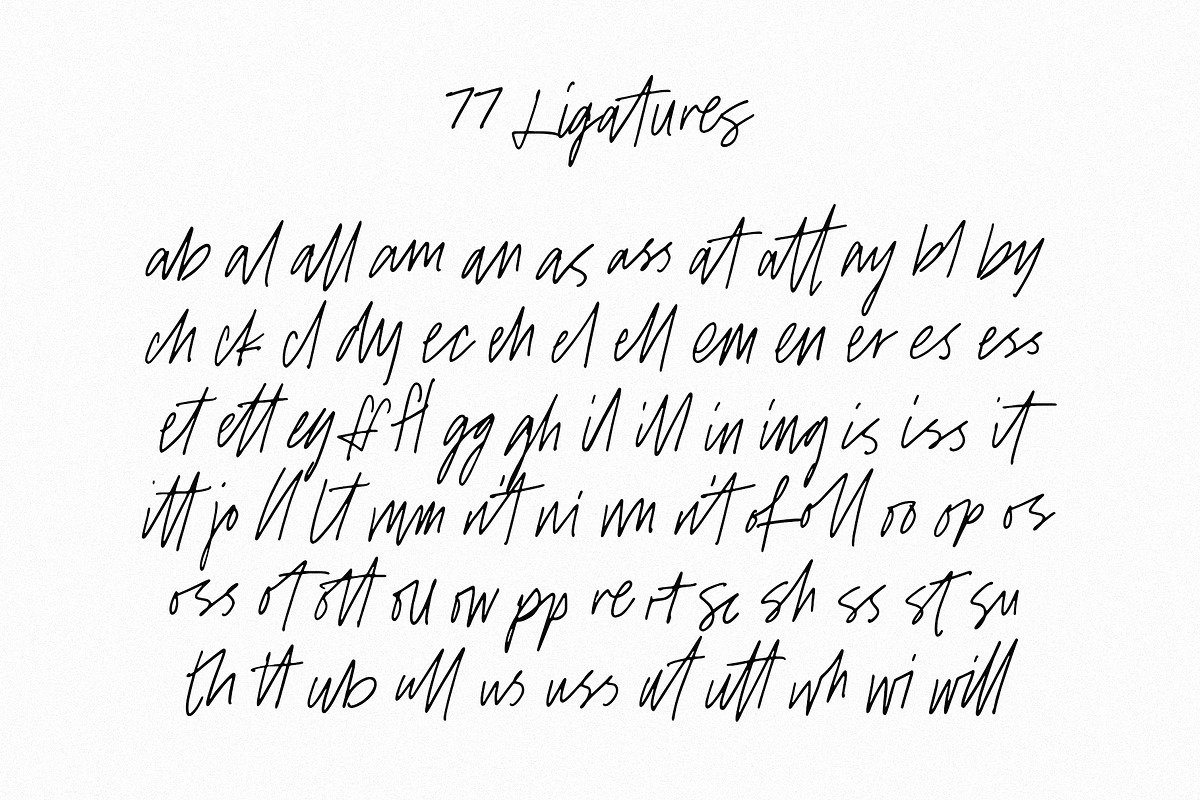 77 Ligatures
ab al all am an as ass at att ay bl by
ch ck cl dy ec eh el ell em en er es ess
et ett ey ff fl gg gh il ill in ing is iss it
itt jo ll lt mm n't ni nn n't of oll oo op os
oss ot ott ou ow pp re rt sc sh ss st su
th tt ub ull us uss ut utt wh wi will